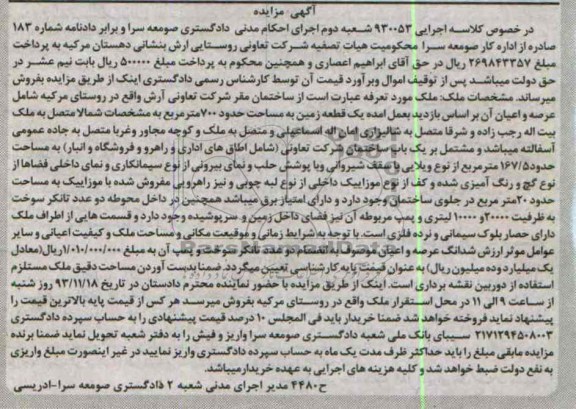 آگهی مزایده
در خصوص کلاسه اجرایی ۹۳۰۰۵۳ شعبه دوم اجرای احکام مدنی دادگستری صومعه سرا و برابر دادنامه شماره ۱۸۳
صادره از اداره کار صومعه سرا محکومیت هیات تصفیه شرکت تعاونی روستایی ارش بنشانی دهستان مرکیه به پرداخت
مبلغ ۲۶۹۸۴۳۳۵۷ ریال در حق آقای ابراهیم اعصاری و همچنین محکوم به پرداخت مبلغ ۵۰۰۰۰۰ ریال بابت نیم عشر در
حق دولت میباشد پس از توقیف اموال وبرآورد قیمت آن توسط کارشناس رسمی دادگستری اینک از طریق مزایده بفروش
میرساند. مشخصات ملک: ملک مورد تعرفه عبارت است از ساختمان مقر شرکت تعاونی آرش واقع در روستای مرکیه شامل
عرصه و اعیان آن بر اساس بازدید بعمل امده یک قطعه زمین به مساحت حدود ۷۰۰مترمربع به مشخصات شمالا متصل به ملک
بیت اله رجب زاده و شرقا متصل به شالیزاری امان اله اسماعیلی و متصل به ملک و کوچه مجاور وغربا متصل به جاده عمومی
آسفالته میباشد و مشتمل بر یک باب ساختمان شرکت تعاونی (شامل اطاق های اداری و راهرو و فروشگاه و انبار) به مساحت
حدود۱۶۷/۵ مترمربع از نوع ویلایی با سقف شیروانی وبا پوشش حلب و نمای بیرونی از نوع سیمانکاری و نمای داخلی فضاها از
نوع گچ و رنگ آمیزی شده و کف از نوع موزاییک داخلی از نوع لبه چوبی و نیز راهرویی مفروش شده با موزاییک به مساحت
حدود ۲۰متر مربع در جلوی ساختمان وجود دارد و دارای امتیاز برق میباشد همچنین در داخل محوطه دو عدد تانکر سوخت
به ظرفیت ۲۰۰۰۰و ۱۰۰۰۰ لیتری و پمپ مربوطه آن نیز فضای داخل زمین و سرپوشیده وجود دارد و قسمت هایی از اطراف ملک
دارای حصار بلوک سیمانی و نرده فلزی است. با توجه به شرایط زمانی و موقعیت مکانی و مساحت ملک و کیفیت اعیانی و سایر
عوامل موثر ارزش ششدانگ عرصه و اعیان موصوف به انضمام دو عدد تانکر سوخت و پمپ آن به مبلغ ۱/۰۱۰/۰۰۰/۰۰۰ریال(معادل
یک میلیارد وده میلیون ریال) به عنوان قیمت پایه کارشناسی تعیین میگردد. ضمنا بدست آوردن مساحت دقیق ملک مستلزم
استفاده از دوربین نقشه برداری است. اینک از طریق مزایده با حضور نماینده محترم دادستان در تاریخ ۹۳/۱۱/۱۸ روز شنبه
از ساعت ۹ الی ۱۱ در محل استقرار ملک واقع در روستای مرکیه بفروش میرسد هر کس از قیمت پایه بالاترین قیمت را
پیشنهاد نماید فروخته خواهد شد ضمنا خریدار باید فی المجلس ۱۰ درصد قیمت پیشنهادی را به حساب سپرده دادگستری
۲۱۷۱۲۹۴۵۰۸۰۰۳ سیبای بانک ملی شعبه دادگستری صومعه سرا واریز و فیش را به دفتر شعبه تحویل نماید ضمنا برنده
مزایده مابقی مبلغ را باید حداکثر ظرف مدت یک ماه به حساب سپرده دادگستری واریز نمایید در غیر اینصورت مبلغ واریزی
به نفع دولت ضبط خواهد شد و کلیه هزینه های اجرایی به عهده خریدار میباشد.
ح۴۴۸۰ مدیر اجرای مدنی شعبه ۲ دادگستری صومعه سرا-ادریسی